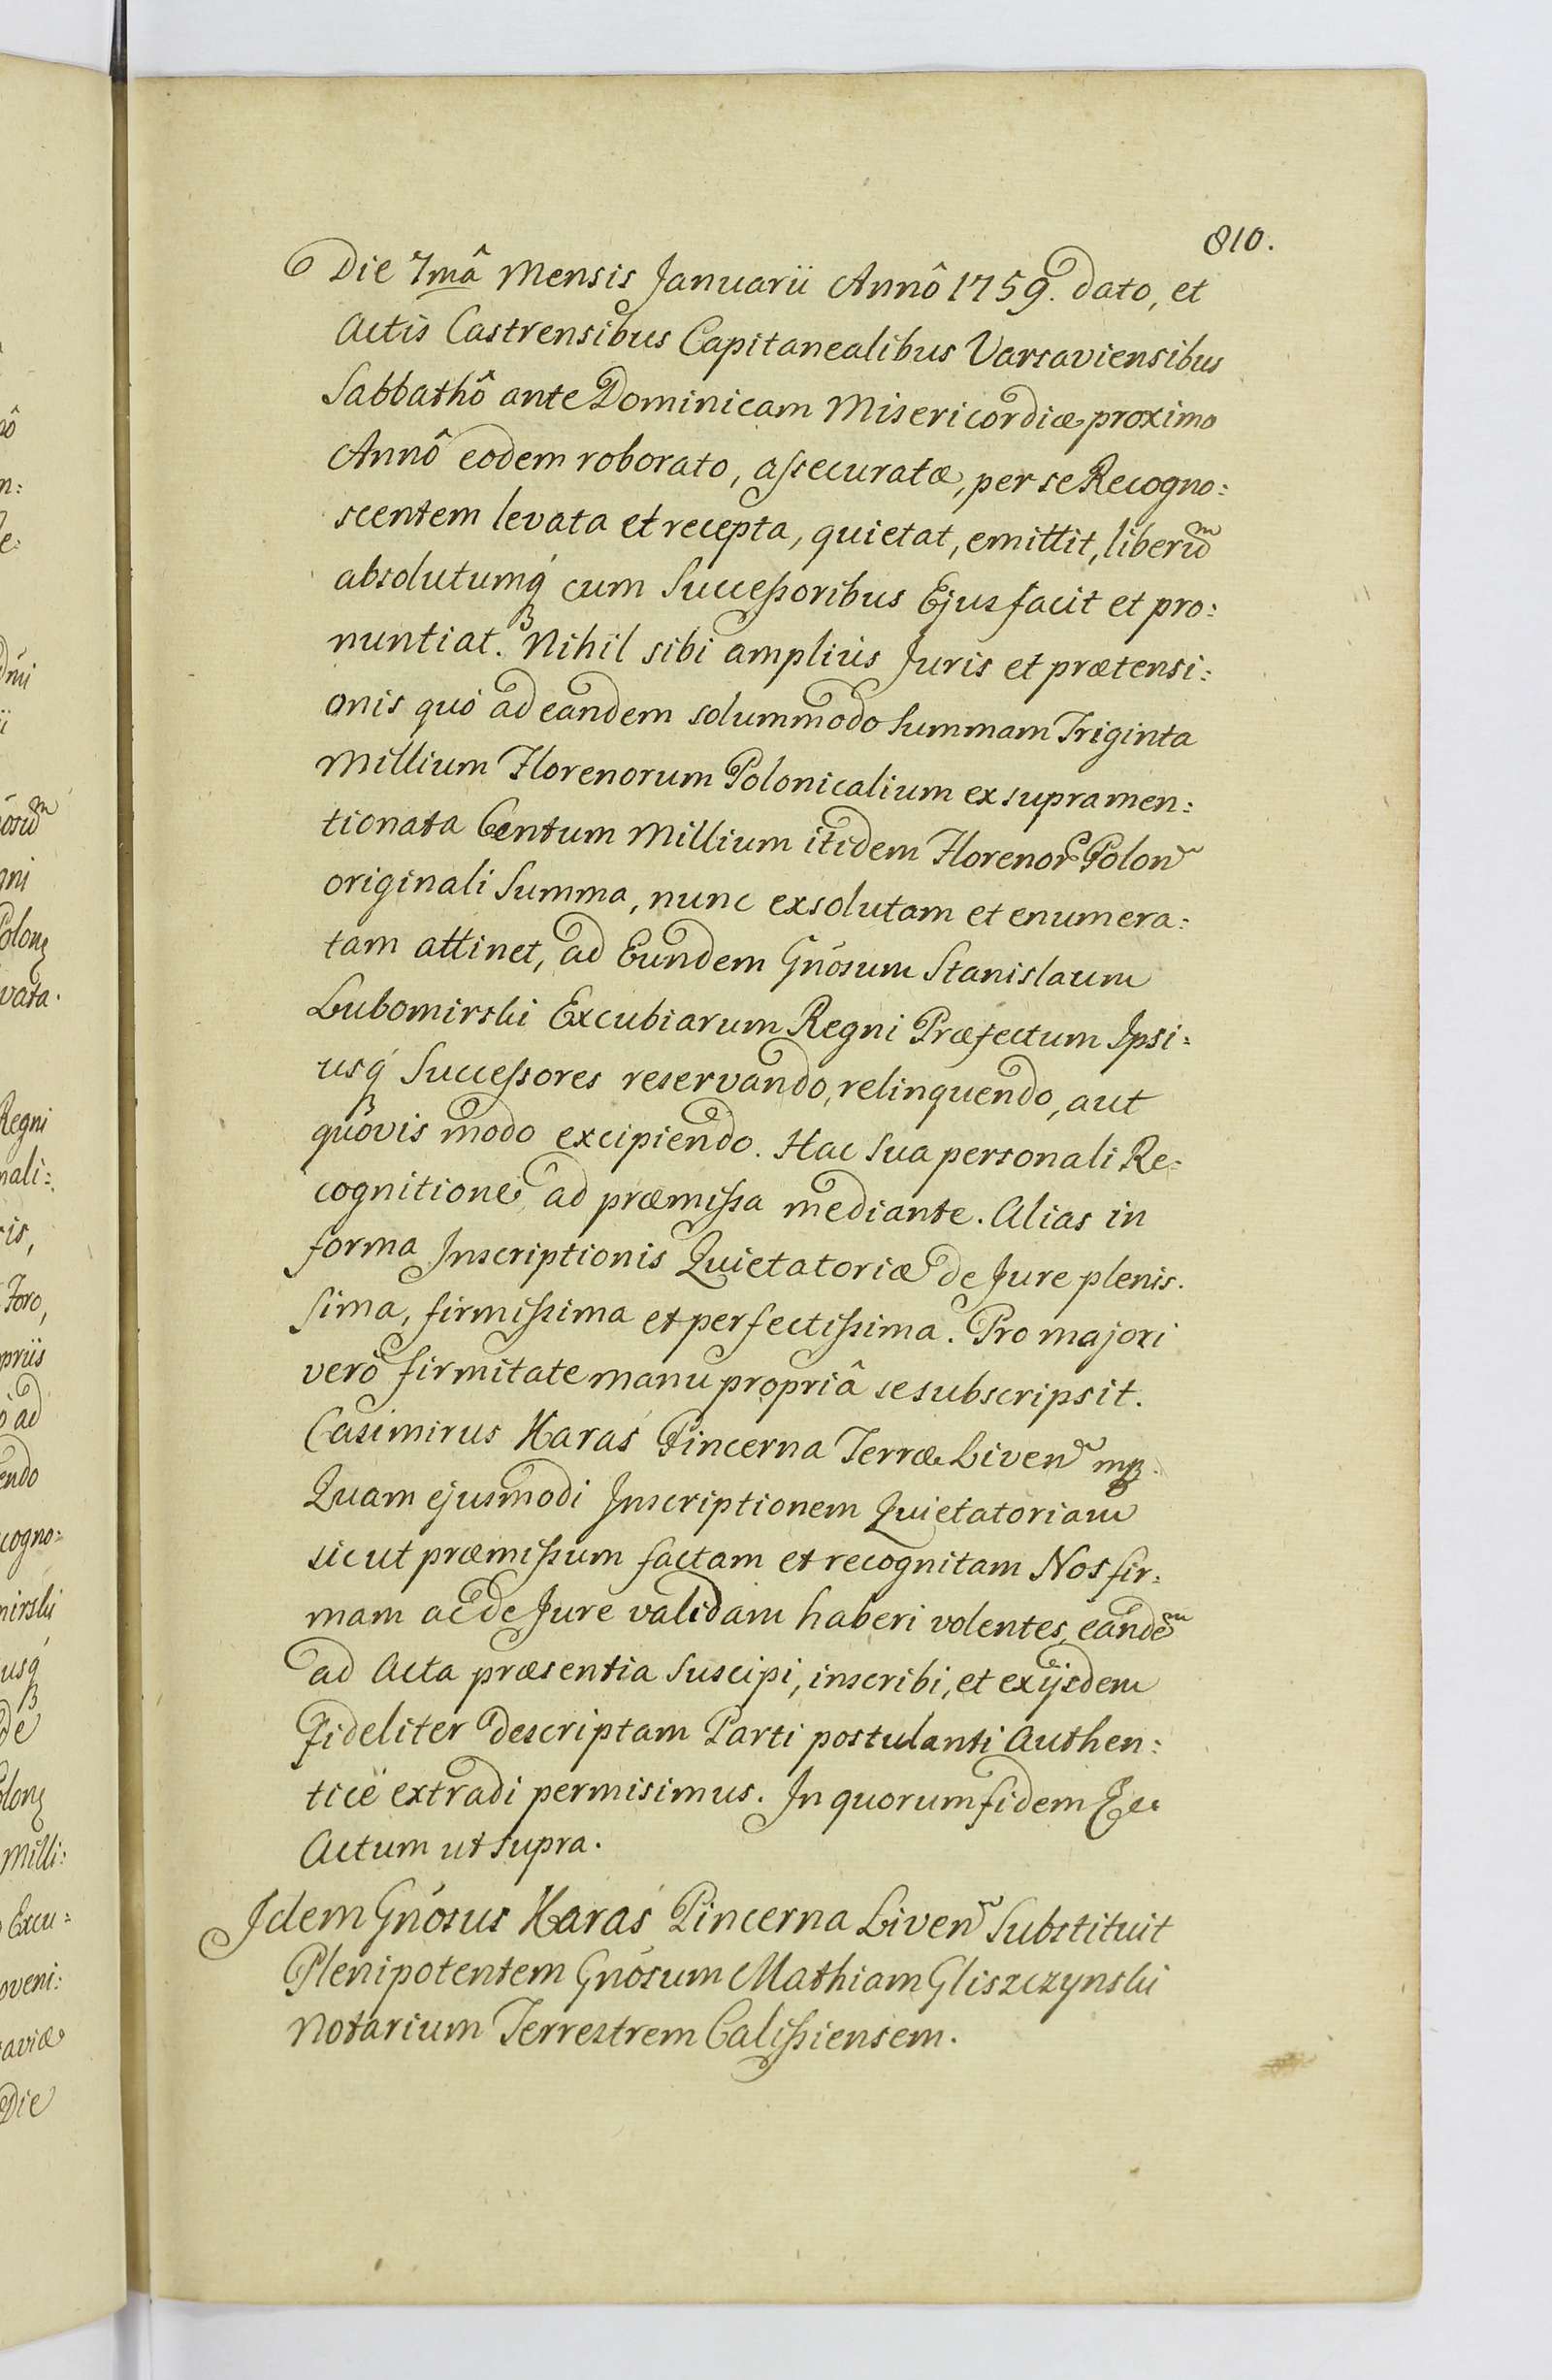 810.
Die 7mâ Mensis Januarii Annô 1759. dato, et
Actis Castrensibus Capitanealibus Varsaviensibus
Sabbathô ante Dominicam Misericordiæ proximo
Annô eodem roborato, assecuratæ, per se Recogno:
scentem levata et recepta, quietat, emittit, liberũm
absolutumq́ cum Successoribus Ejus facit et pro:
nuntiat. Nihil sibi amplius Juris et prætensi:
onis quo ad eandem solummodo Summam Triginta
Millium Florenorum Polonicalium ex supramen:
tionata Centum Millium itidem Florenor Polon
originali Summa, nunc exsolutam et enumera:
tam attinet, ad Eundem Gnósum Stanislaum
Lubomirski Excubiarum Regni Præfectum Ipsi:
usq́ Successores reservando, relinquendo, aut
quovis modo excipiendo. Hac Sua personali Re:
cognitione ad præmissa mediante. Alias in
forma Inscriptionis Quietatoriæ de Jure plenis.
sima, firmissima et perfectissima. Pro majori
vero firmitate manu propriâ se subscripsit.
Casimirus Karaś Pincerna Terræ Liven mp.
Quam ejusmodi Inscriptionem Quietatoriam
sicut præmissum factam et recognitam Nos fir:
mam ac de Jure validam haberi volentes, eandem
ad Acta præsentia Suscipi, inscribi, et ex ijsdem
fideliter descriptam Parti postulanti Authen:
ticè extradi permisimus. In quorum fidem Etc
Actum ut supra.
Idem Gnósus Karaś Pincerna Liven Substituit
Plenipotentem Gnósum Mathiam Gliszczynski
Notarium Terrestrem Calissiensem.